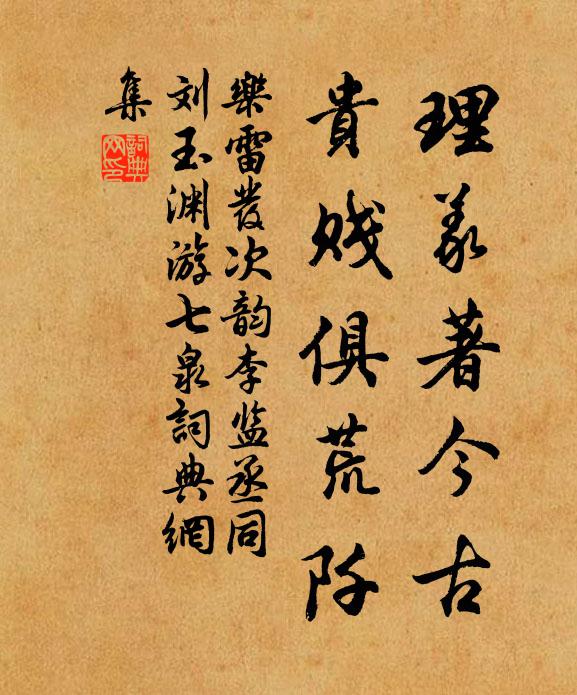 理義著今古
貴賤俱荒阡
樂雷發次韵李监丞同
刘玉渊游七泉詞典網
集
詞典網印